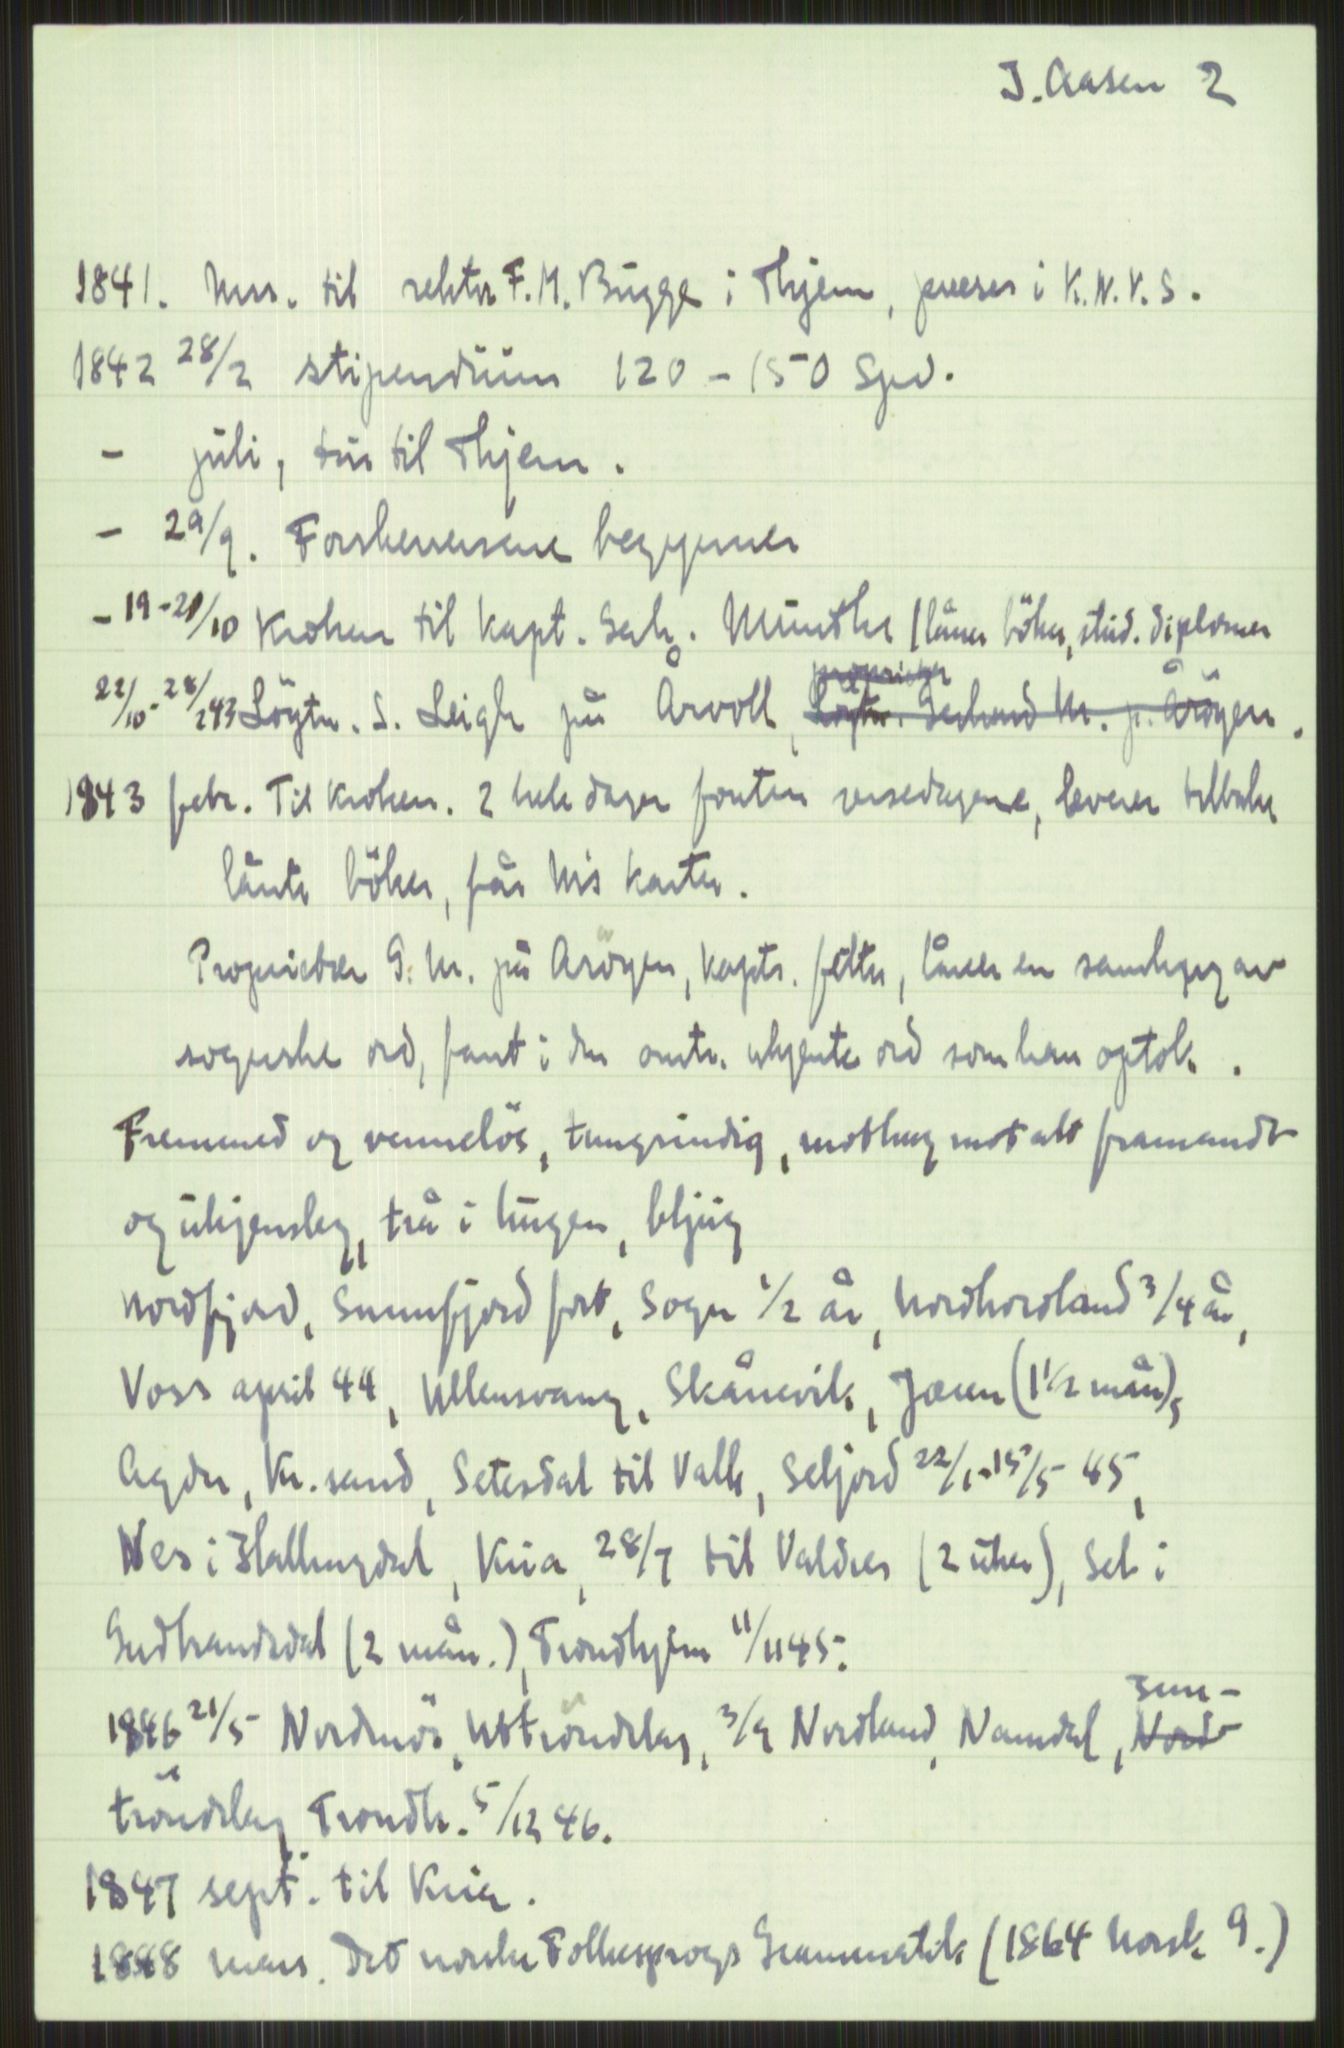 I. Aasen 2
1841. Mus. til rektor F. M. Bugge i Thjem, preses i K.N.V.S.
1842 28/2 stipendium 120 - 150 Spd.
- juli, tur til Thjem.
- 29/9. Forskerreisene begynner
- 19-21/10 Kroken til kapt. Gerh. Munthe (låner böker, stud. diplomer
22/10-28/2 43 Löytn. S. Leigh på Årvoll, proprietær Löytn. Gerhard M. p. Äröyen.
1843 febr. Til Kroken. 2 hele dager foruten reisedagene, leverer tilbake
lånte böker, får M's karter.
Proprietær G. M. på Aröyen, kapts. fetter, låner en samling av
sognske ord, fant i den omtr. ukjente ord som han optok.
Fremmed og vennelös, tungsindig, mothug mot alt framandt
og ukjensleg, trå i hugen, bljug
Nordfjord, Sunnfjord fort, Sogn 1/2 år, Nordhordland 3/4 år,
Voss april 44, Ullensvang, Skånevik, Jæren (1 1/2 mån),
Agder, Kr.sand, Setesdal til Valle, Seljord 22/1-15/5 45,
Nes i Hallingdal, Kria, 28/7 til Valdres (2 uker), Sel i
Gudbrandsdal (2 mån.), Trondhjem 11/11 45.
1846 21/5 Nordmör, Uttröndelag, 3/9 Nordland, Namdal, Nord- Inn-
tröndelag Trondh. 5/12 46.
1847 sept. til Kria.
1848 mars. Det norske Folkesprogs Grammatik (1864 Norsk G.)